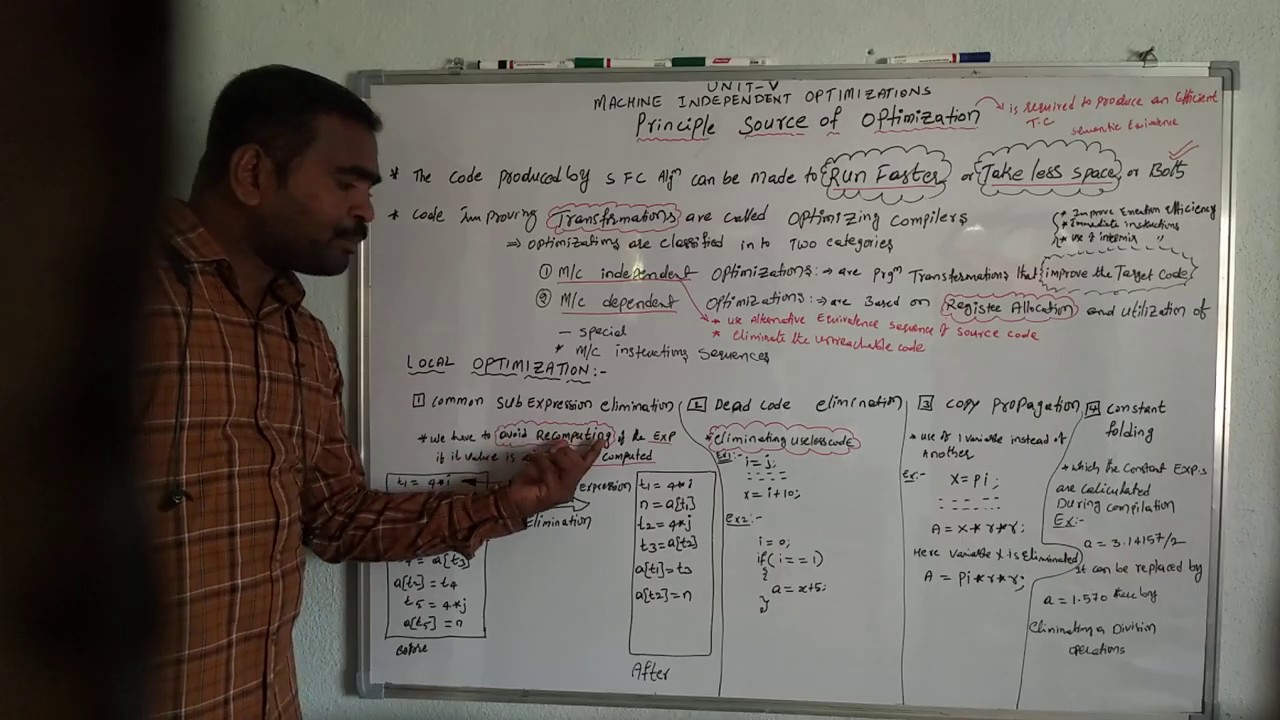 UNIT-V
MACHINE INDEPENDENT OPTIMIZATIONS
Principle Source of Optimization
is required to produce an Efficient
T.C
* The code produced by SFC Algm can be made to Run Faster or Take less space or Both
* code Improving Transformations are called Optimizing compilers
* Improve Execution Efficiency
* Immediate instructions
* use of
⇒ optimizations are classified in to Two categories
① M/C independent Optimizations: → are prgm Transformations that improve the Target Code
② M/C dependent Optimizations: → are Based on Register Allocation and utilization of
* use Alternative Equivalence sequence of source code
* Eliminate the unreachable code
— special
* M/C instructions Sequences
LOCAL OPTIMIZATION:-
1 common SUB Expression elimination
* we have to avoid Recomputing of the Exp
if it value is computed
t1 = 4*i
= a[t3]
= t4
t5 = 4*j
a[t5] = n
Before
expression
Elimination
t1 = 4*i
n = a[t1]
t2 = 4*j
t3 = a[t2]
a[t1] = t3
a[t2] = n
After
2 Dead code elimination
* eliminating useless code
Ex1:-
i = j;
x = i+10;
Ex2:-
i = 0;
if( i == 1)
{
a = x+5;
}
3 copy propagation
* use of 1 variable instead of
Another
Ex:-
X = Pi;
A = X*r*r;
Here Variable X is Eliminated
A = Pi*r*r;
4 constant
folding
* which the Constant Exp.s
are calculated
During compilation
Ex:-
a = 3.14157/2
It can be replaced by
a = 1.570 there by
Eliminating a Division
operations